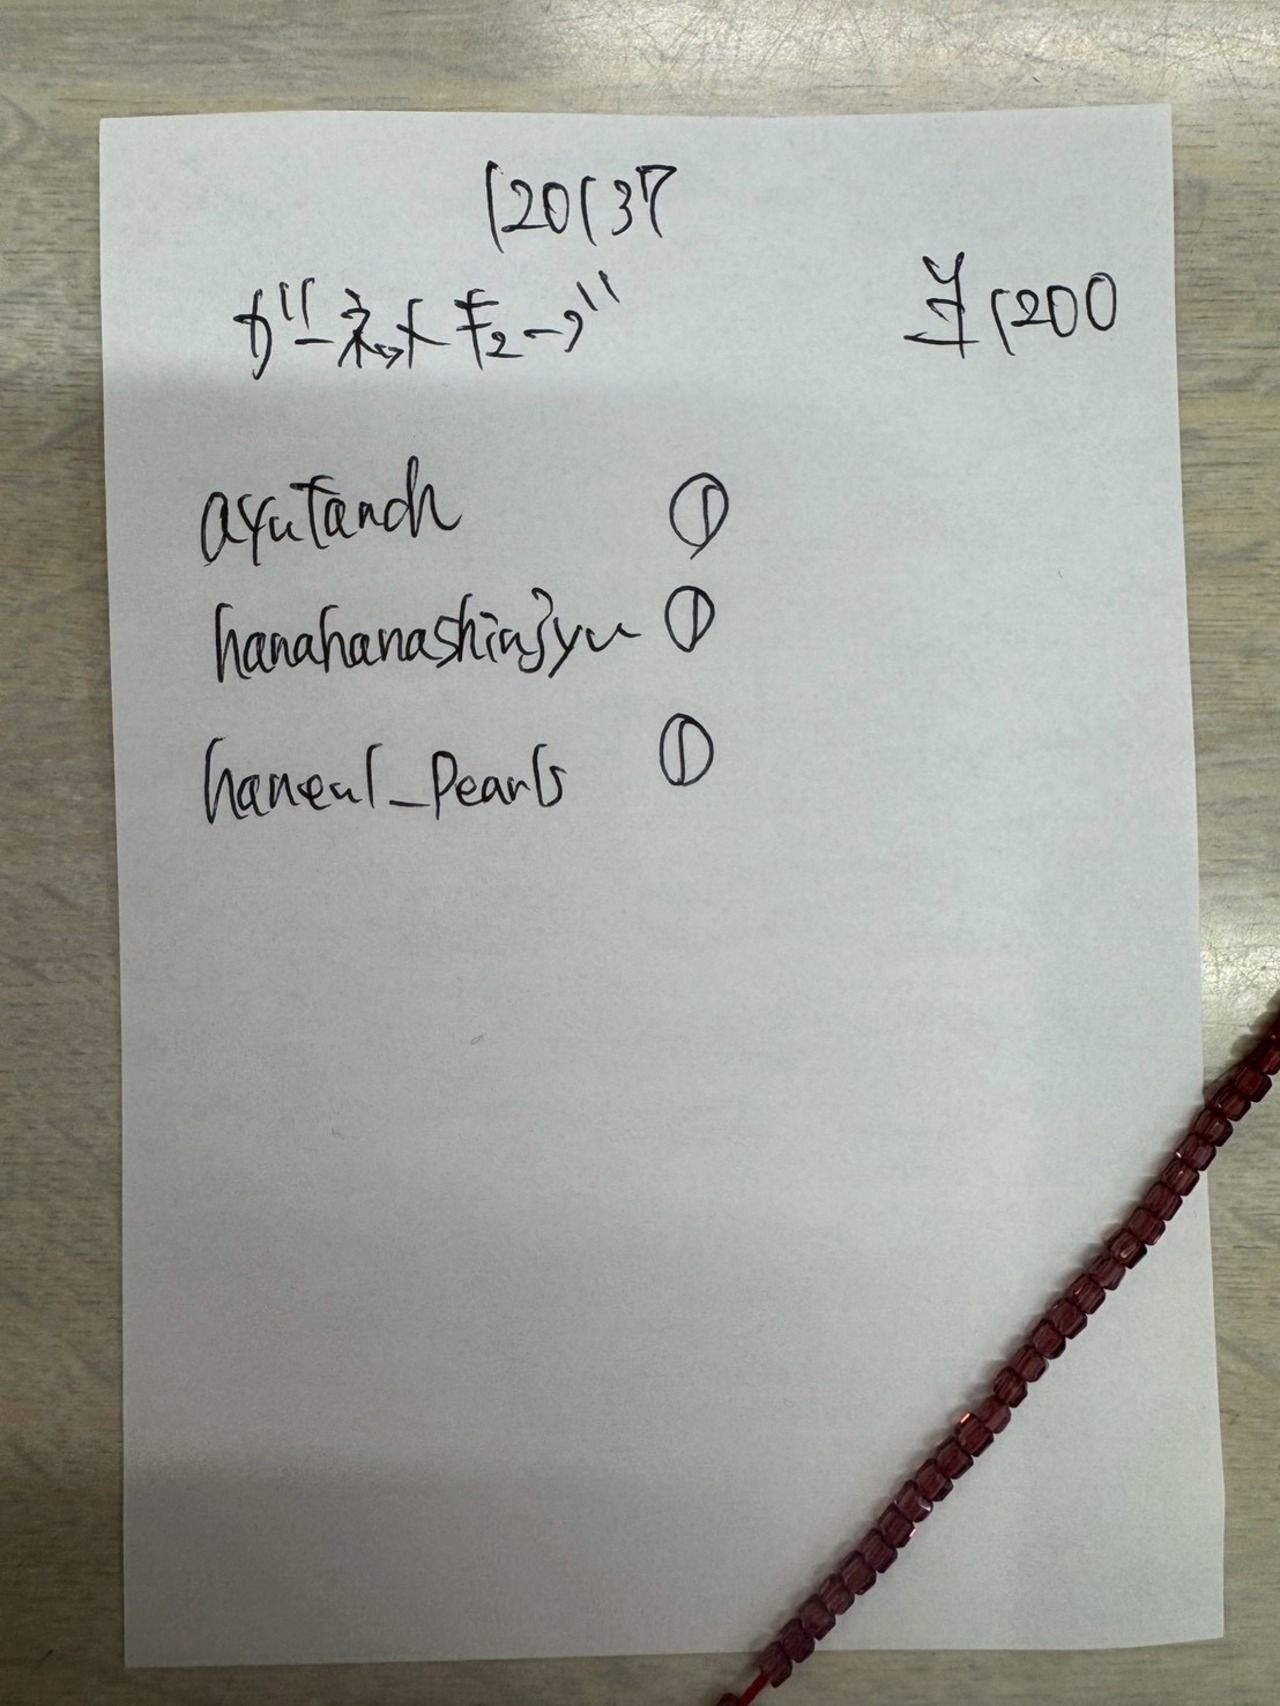 120137
ガーネットキューブ ¥1200
ayutandh ①
hanahanashinjyu ①
haneul_Pearls ①